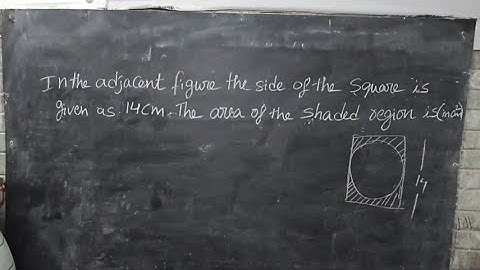 In the adjacent figure the side of the square is
given as 14cm. The area of the shaded region is
14